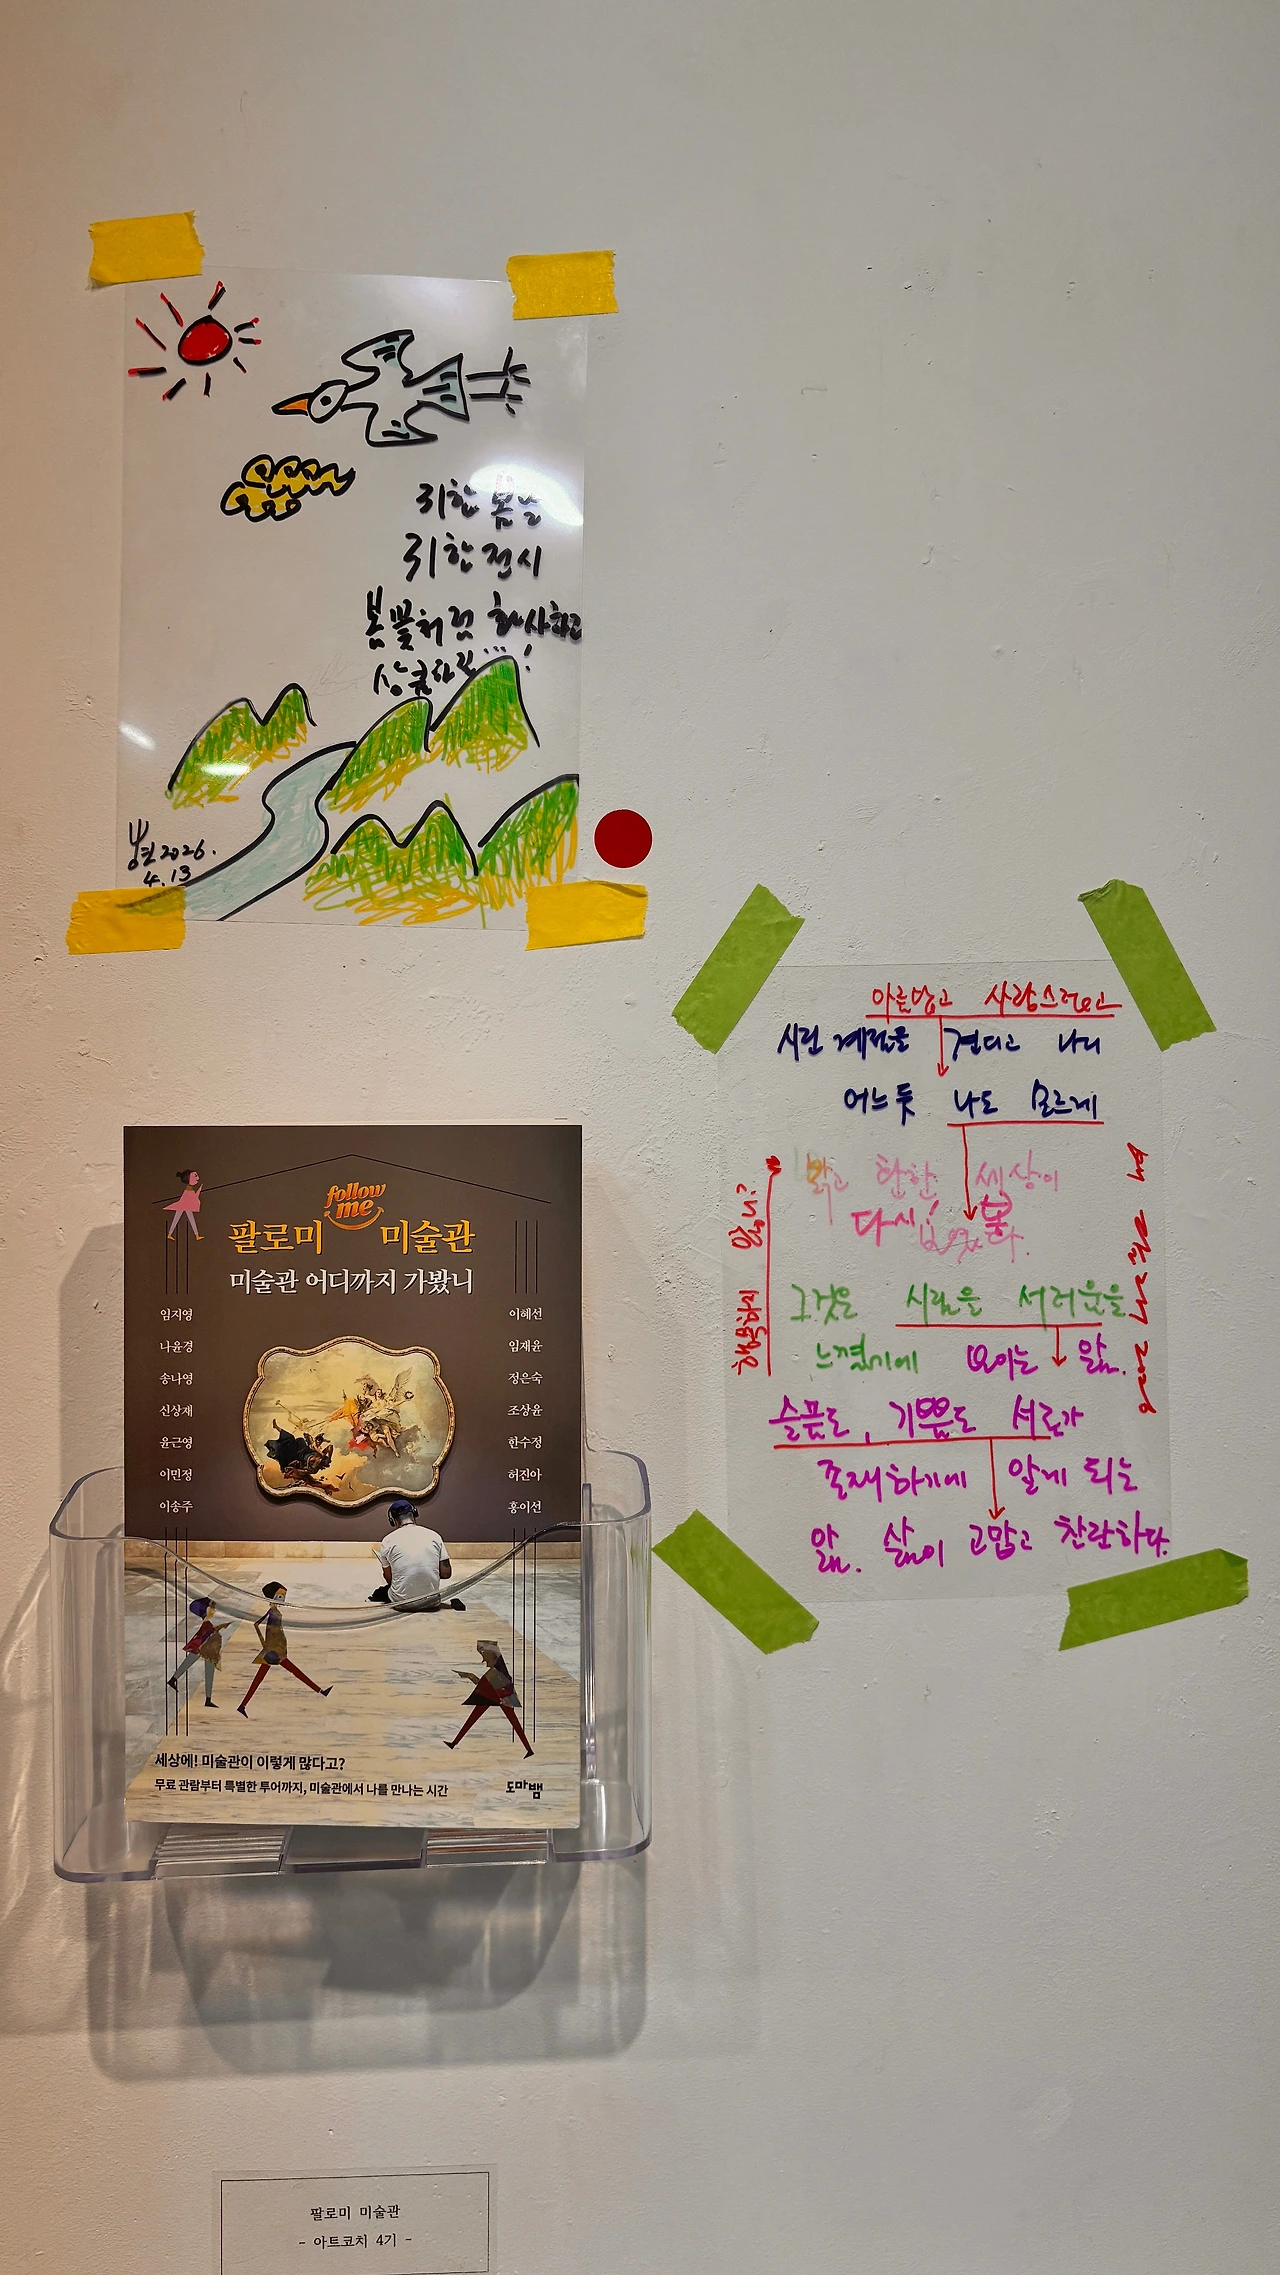 귀한 봄날
귀한 전시
봄꽃처럼 화사하고
2026.
4.13
아름답고 사랑스럽고
시린 계절을 견디고 나니
어느듯 나도 모르게
밝고 환한 세상이
다시!
그것은 시림을 서러움을
느꼈기에 보이는 앎.
슬픔도, 기쁨도 서로가
존재하기에 알게 되는
앎. 삶이 고맙고 찬란하다.
행복하지 않니?
follow
me
팔로미 미술관
미술관 어디까지 가봤니
임지영
나윤경
송나영
신상재
윤근영
이민정
이송주
이혜선
임재윤
정은숙
조상윤
한수정
허진아
홍이선
세상에! 미술관이 이렇게 많다고?
무료 관람부터 특별한 투어까지, 미술관에서 나를 만나는 시간
도마뱀
팔로미 미술관
- 아트코치 4기 -